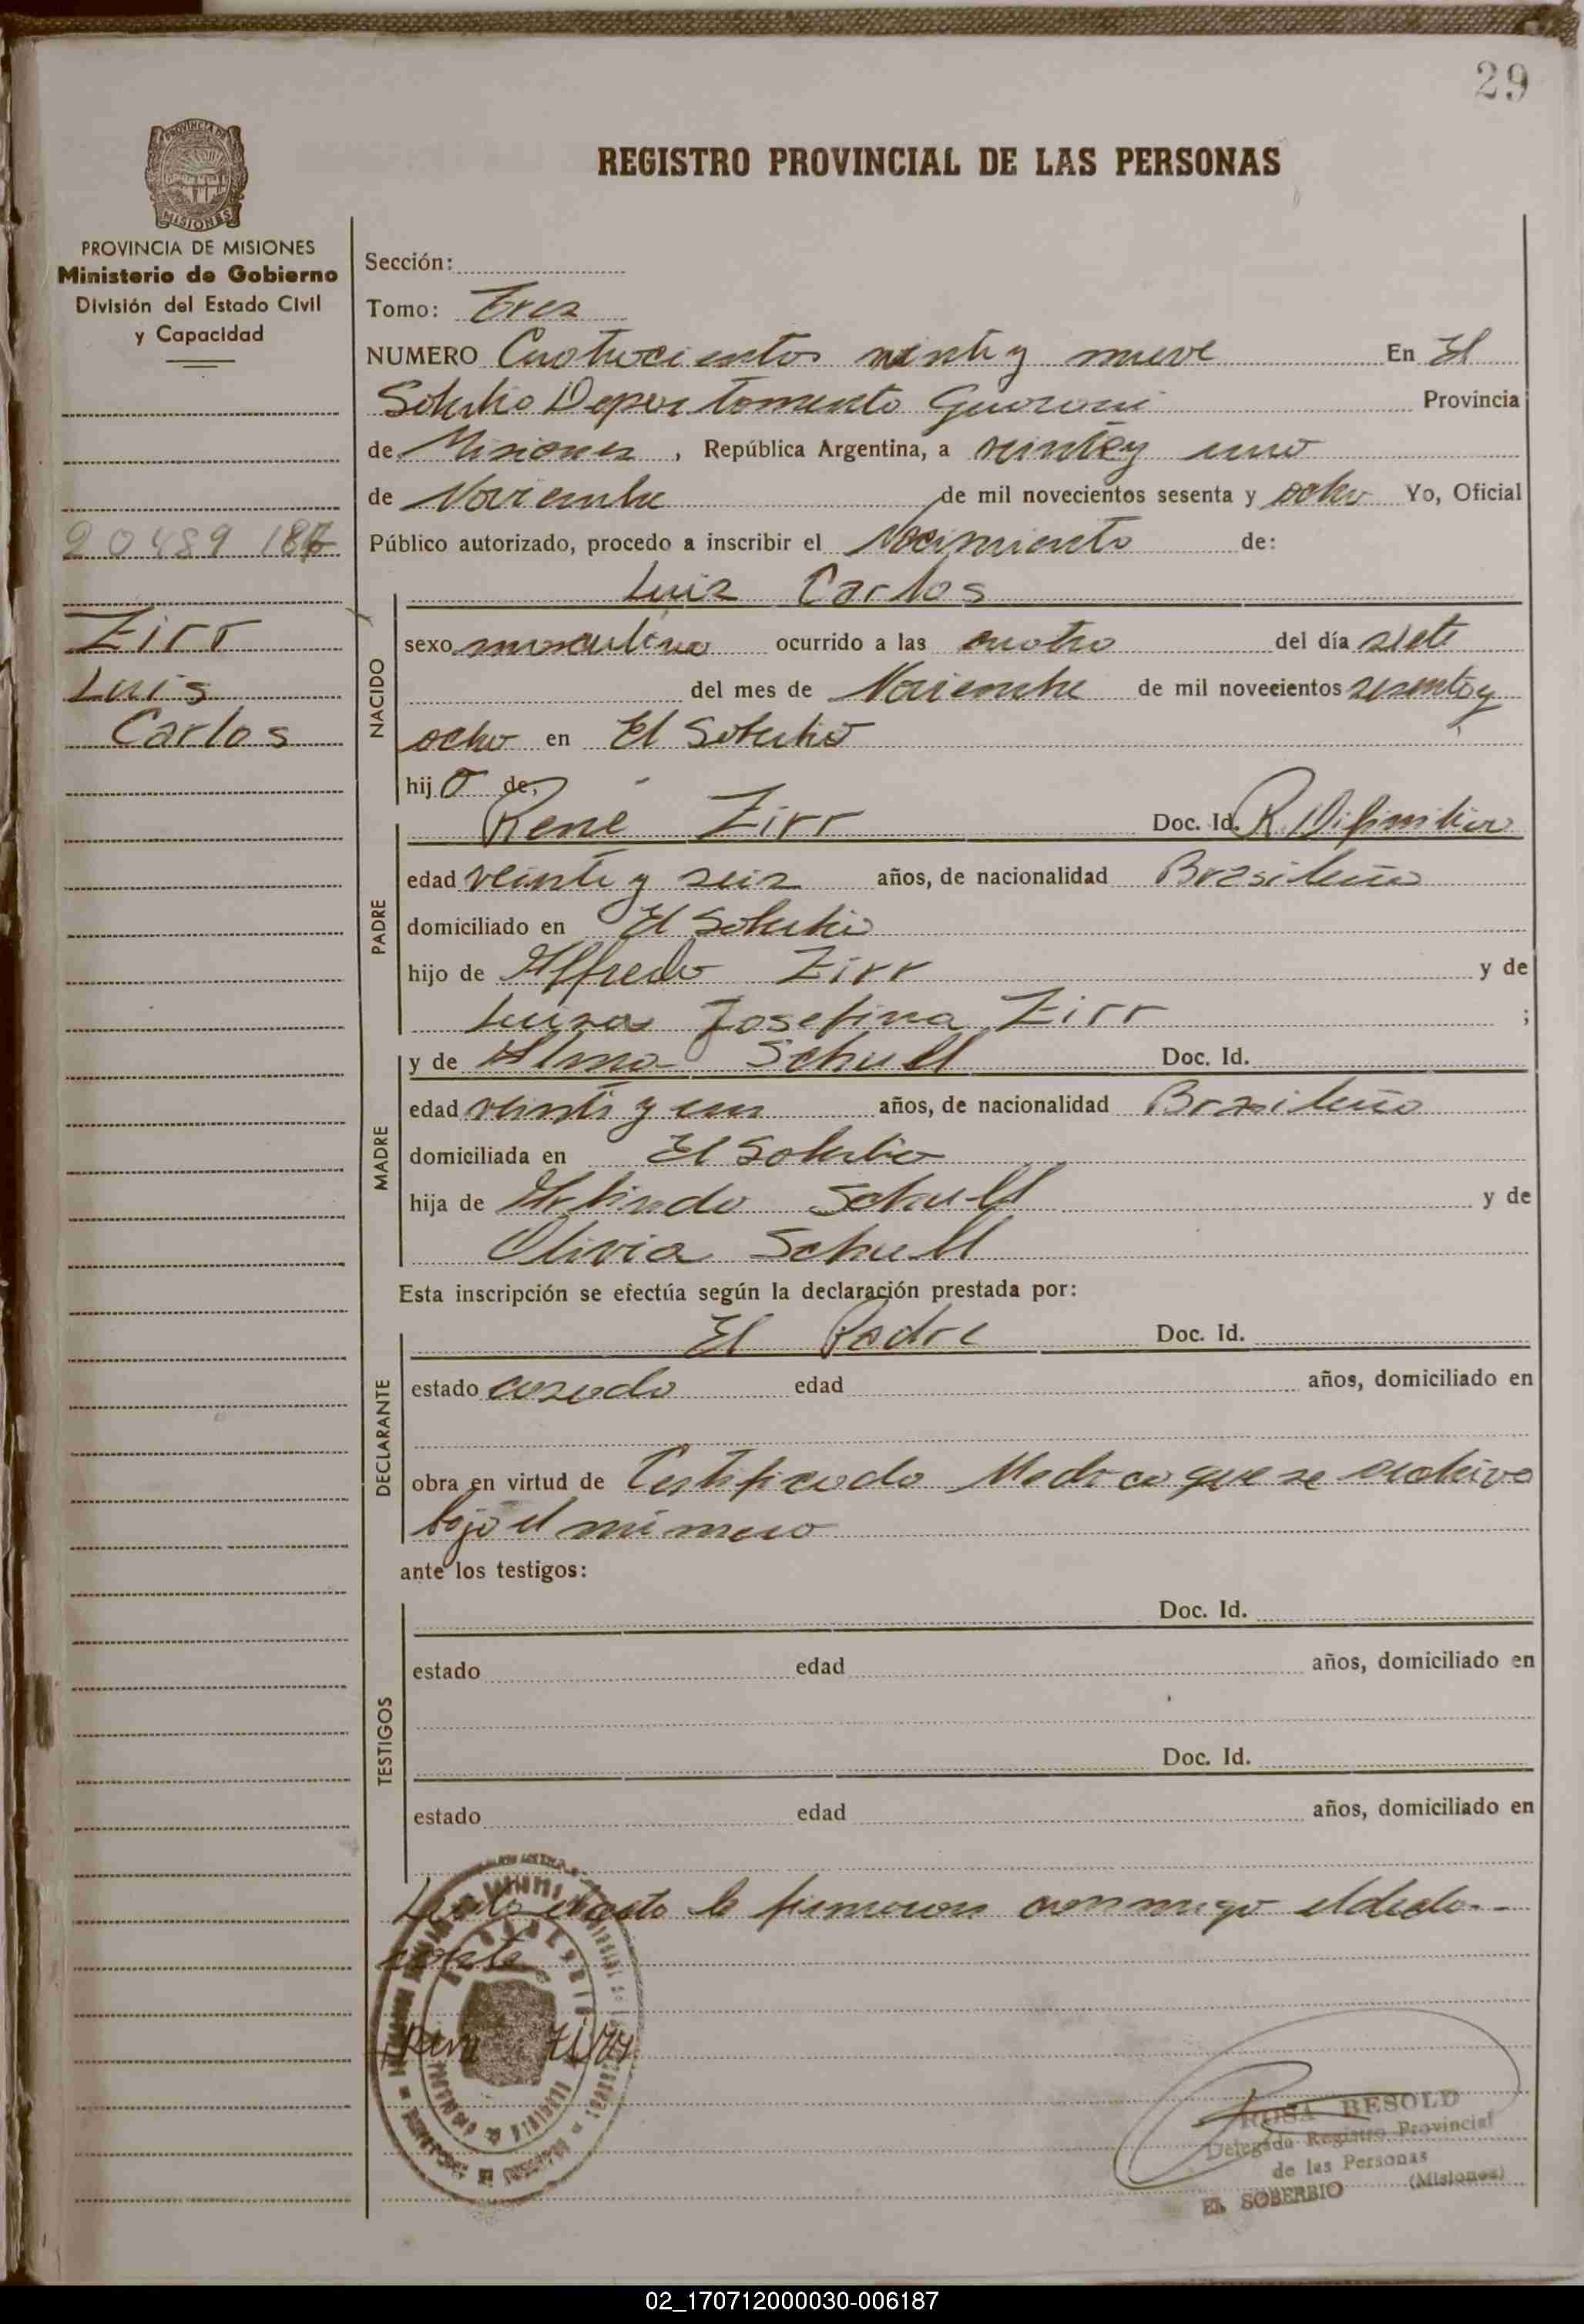 29
REGISTRO PROVINCIAL DE LAS PERSONAS
PROVINCIA DE MISIONES
PROVINCIA DE MISIONES
Ministerio de Gobierno
División del Estado Civil
y Capacidad
20489 187
Zirr
Luis
Carlos
Sección:
Tomo: Tres
NUMERO Cuatrocientos veinte y nueve En El
Soberbio Departamento Guarani Provincia
de Misiones, República Argentina, a veinte y uno
de Noviembre de mil novecientos sesenta y ocho Yo, Oficial
Público autorizado, procedo a inscribir el Nacimiento de:
NACIDO
Luis Carlos
sexo masculino ocurrido a las cuatro del día siete
del mes de Noviembre de mil novecientos sesenta y
ocho en El Soberbio
hij o de:
PADRE
René Zirr Doc. Id. R. Difinitiva
edad veinte y seis años, de nacionalidad Brasileña
domiciliado en El Soberbio
hijo de Alfredo Zirr y de
Luisa Josefina Zirr ;
MADRE
y de Alma Schull Doc. Id.
edad veinte y un años, de nacionalidad Brasileña
domiciliada en El Soberbio
hija de Arlindo Schull y de
Olivia Schull
Esta inscripción se efectúa según la declaración prestada por:
DECLARANTE
El Padre Doc. Id.
estado casado edad años, domiciliado en
obra en virtud de Certificado Medico que se archiva
bajo el número
ante los testigos:
TESTIGOS
Doc. Id.
estado edad años, domiciliado en
Doc. Id.
estado edad años, domiciliado en
Leida el acta la firmaron conmigo el decla-
rante
Rene Zirr
ROSA BESOLD
Delegada Registro Provincial
de las Personas
EL SOBERBIO (Misiones)
02_170712000030-006187